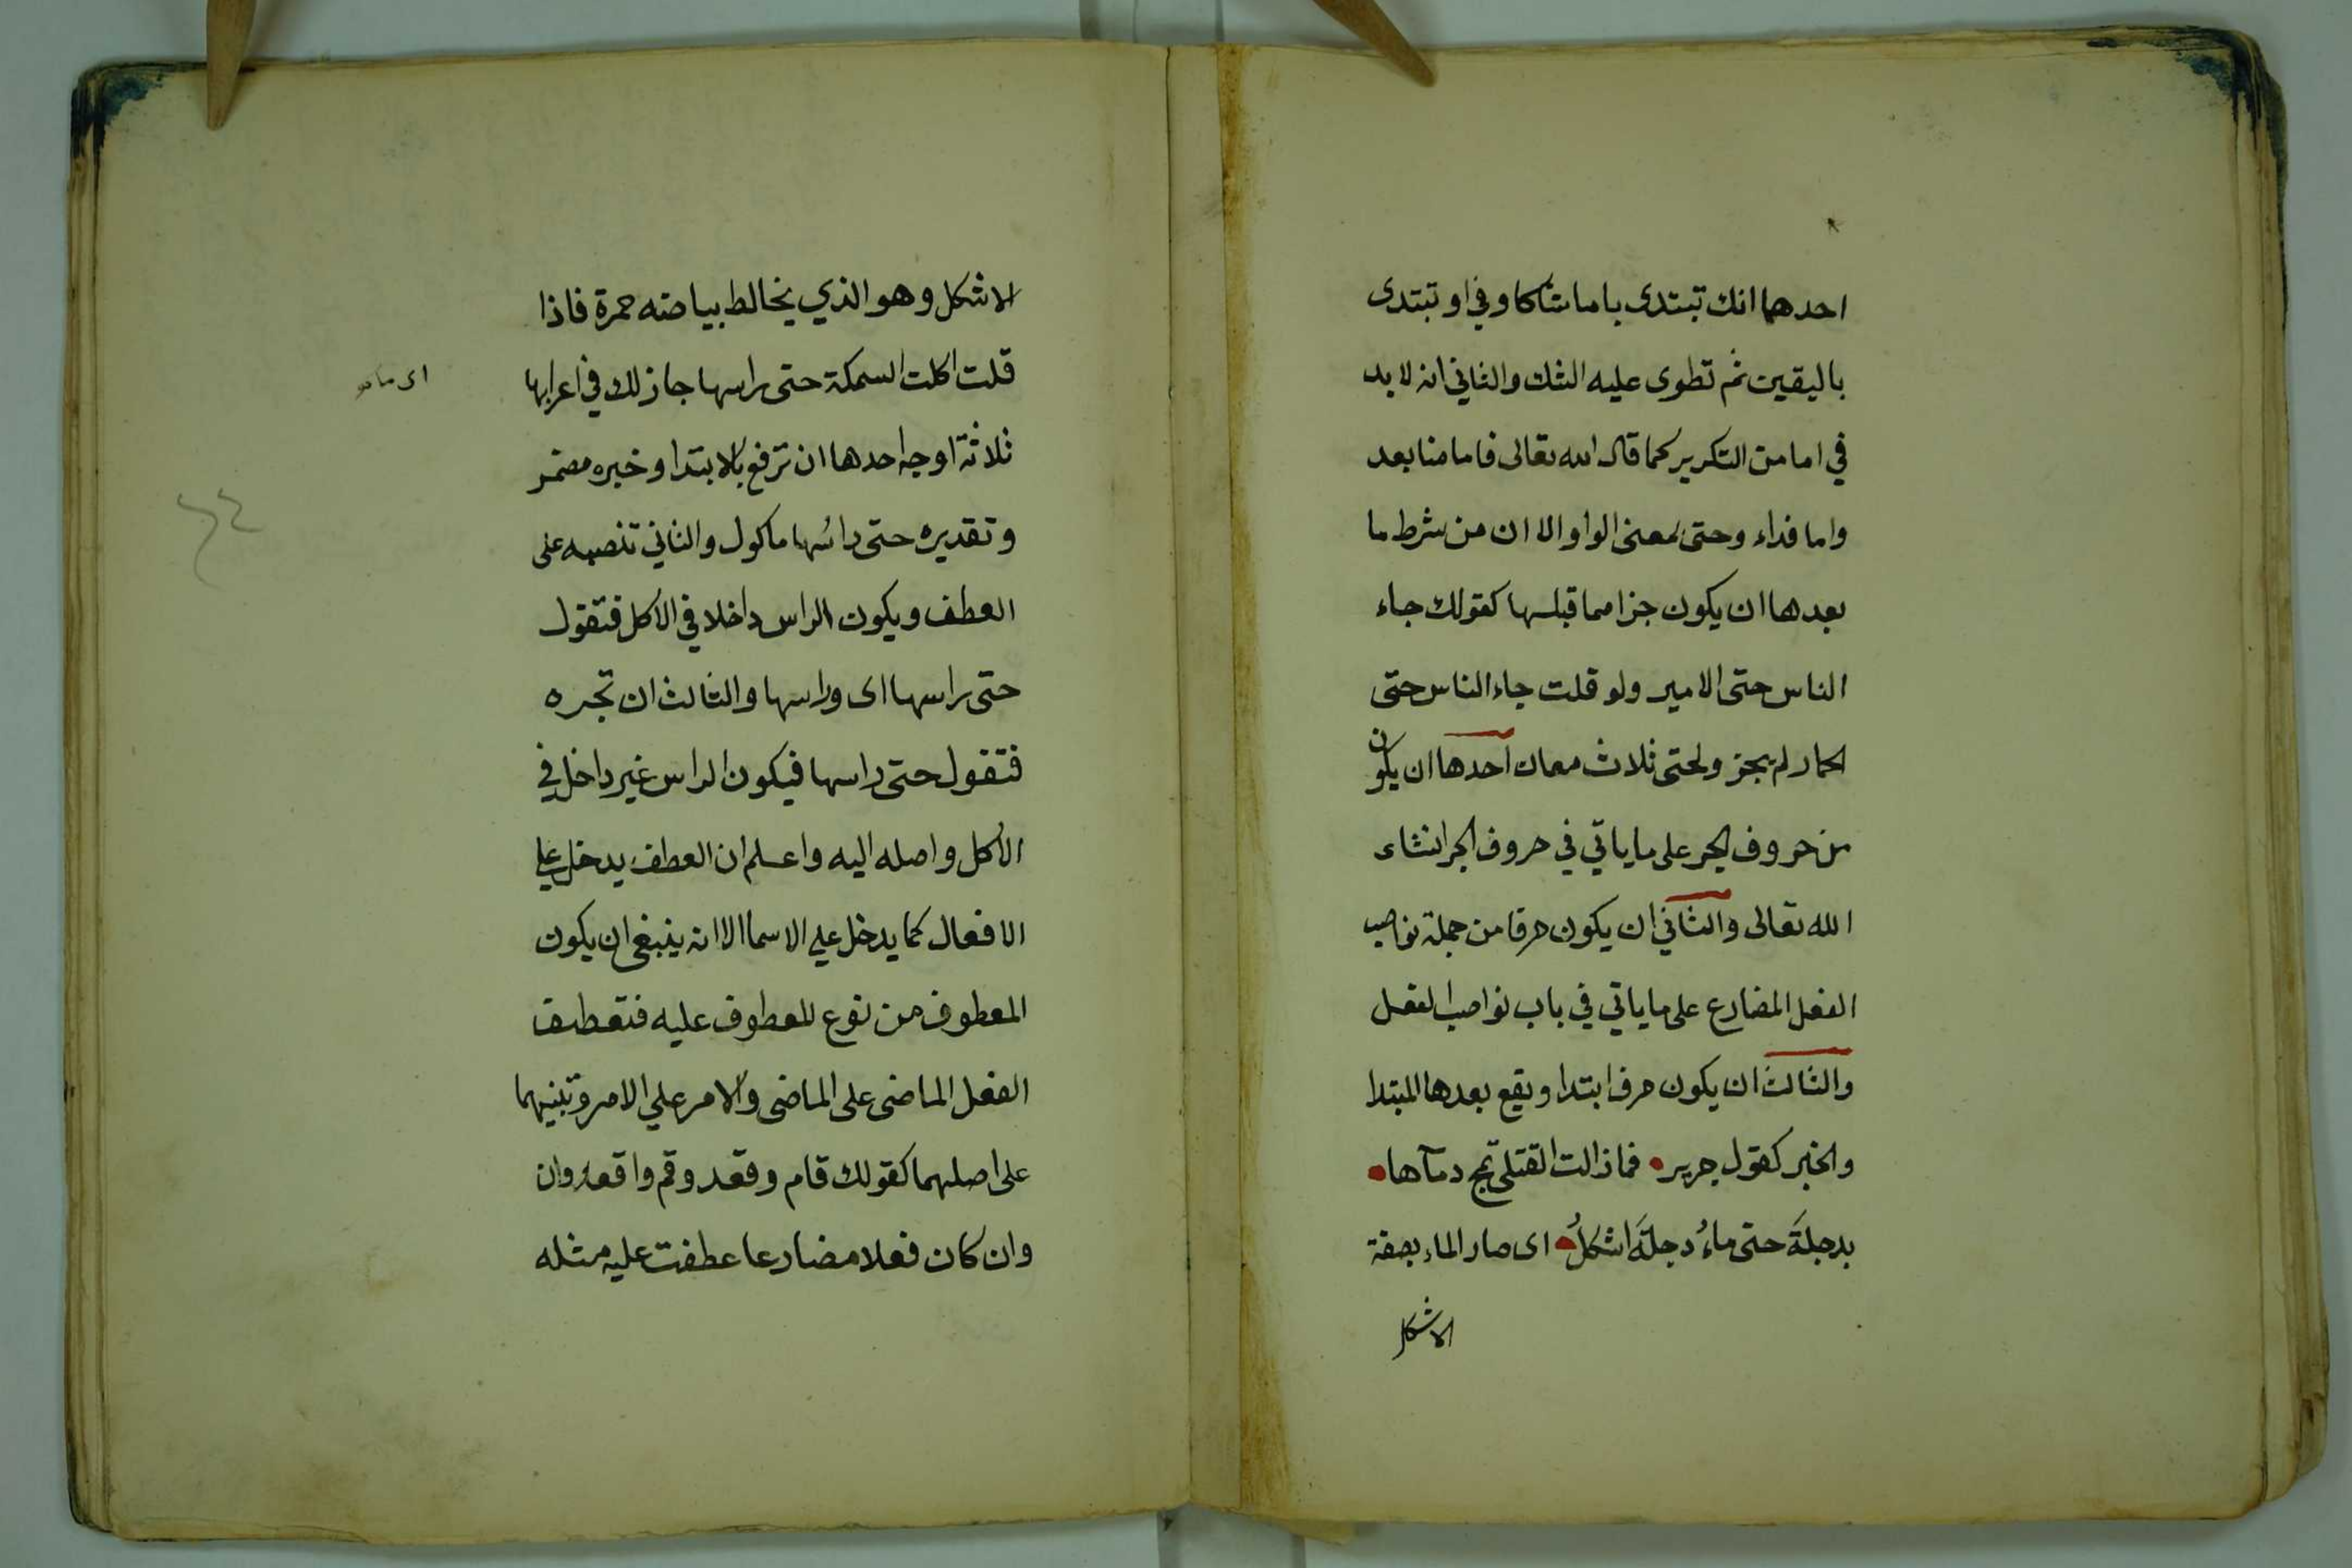 احدهما انك تبتدى باما شاكا وفي او تبتدى
باليقين ثم تطوى عليه الشك والثاني انه لا بد
في اما من التكرير كما قال الله تعالى فاما منا بعد
واما فداء وحتى بمعنى الواو الا ان من شرط ما
بعدها ان يكون جزا مما قبلها كقولك جاء
الناس حتى الامير ولو قلت جاء الناس حتى
الحمار لم يجز ولحتى ثلاث معان احدها ان يكون
من حروف الجر على ما ياتي في حروف الجر انشاء
الله تعالى والثاني ان يكون حرفا من جملة نواصب
الفعل المضارع على ما ياتي في باب نواصب الفعل
والثالث ان يكون حرف ابتدا ويقع بعدها المبتدا
والخبر كقول جرير • فما زالت القتلى تمج دمآها •
بدجلةَ حتى ماءُ دجلةَ اشكلُ • اى صار الماء بصفة
الاشكل
الاشكل وهو الذي يخالط بياضه حمرة فاذا
قلت اكلت السمكة حتى راسها جاز لك في اعرابها
ثلاثة اوجه احدها ان ترفع بالابتدا وخبره مضمر
وتقديره حتى رائسها ماكول والثاني تنصبه على
العطف ويكون الراس داخلا في الاكل فتقول
حتى راسها اى وراسها والثالث ان تجره
فتقول حتى راسها فيكون الراس غير داخل في
الأكل واصله اليه واعلم ان العطف يدخل علي
الافعال كما يدخل علي الاسما الا انه ينبغي ان يكون
المعطوف من نوع للمعطوف عليه فتعطف
الفعل الماضى على الماضى والامر علي الامر وتبنيهما
على اصلهما كقولك قام وقعد وقم واقعد وان
وان كان فعلا مضارعا عطفت عليه مثله
اى